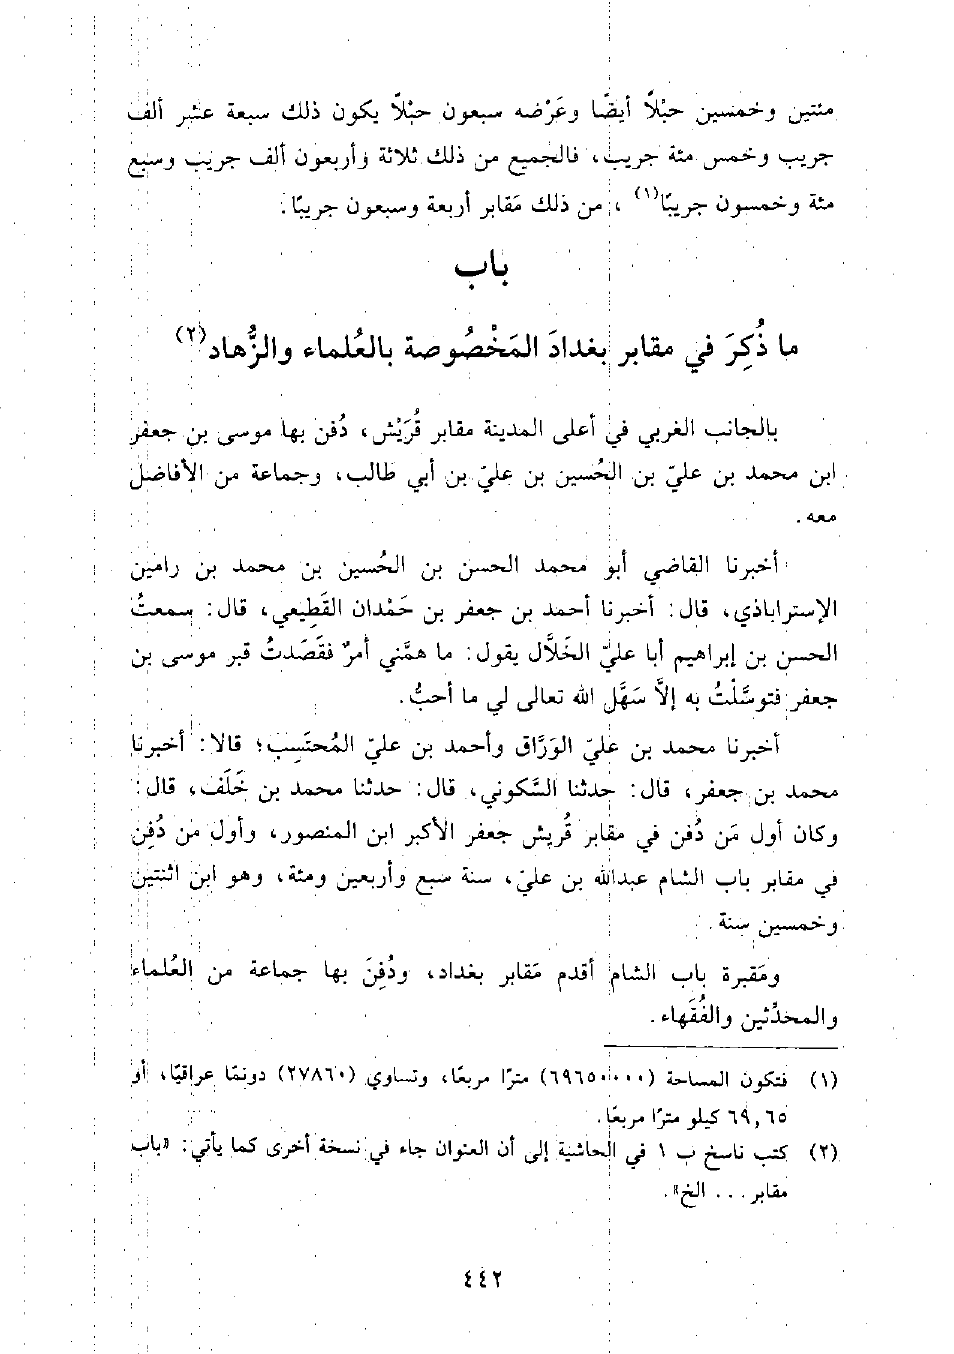 مئتين وخمسين حبْلاً أيضًا وعَرْضه سبعون حبْلاً يكون ذلك سبعة عشر ألف
جريب وخمس مئة جريب، فالجميع من ذلك ثلاثة وأربعون ألف جريب وسبع
مئة وخمسون جريبًا(١)، من ذلك مَقابر أربعة وسبعون جريبًا.
باب
ما ذُكِرَ في مقابر بغدادَ المَخْصُوصة بالعُلماء والزُّهاد(٢)
بالجانب الغربي في أعلى المدينة مقابر قُرَيْش، دُفن بها موسى بن جعفر
ابن محمد بن عليّ بن الحُسين بن عليّ بن أبي طالب، وجماعة من الأفاضل
معه.
أخبرنا القاضي أبو محمد الحسن بن الحُسين بن محمد بن رامين
الإستراباذي، قال: أخبرنا أحمد بن جعفر بن حَمْدان القَطِيعي، قال: سمعتُ
الحسن بن إبراهيم أبا عليّ الخَلاَّل يقول: ما همَّني أمرٌ فقَصَدتُ قبر موسى بن
جعفر فتوسَّلْتُ به إلاَّ سَهَّل الله تعالى لي ما أحبُّ.
أخبرنا محمد بن عليّ الوَرَّاق وأحمد بن عليّ المُحتَسِب؛ قالا: أخبرنا
محمد بن جعفر، قال: حدثنا السَّكوني، قال: حدثنا محمد بن خَلَف، قال:
وكان أول مَن دُفن في مقابر قُريش جعفر الأكبر ابن المنصور، وأول من دُفِن
في مقابر باب الشام عبدالله بن عليّ، سنة سبع وأربعين ومئة، وهو ابن اثنتين
وخمسين سنة.
ومَقبرة باب الشام أقدم مَقابر بغداد، ودُفِنَ بها جماعة من العُلماء
والمحدِّثين والفُقَهاء.
(١) فتكون المساحة (٦٩٦٥٠٠٠٠) مترًا مربعًا، وتساوي (٢٧٨٦٠) دونمًا عراقيًا، أو
٦٩,٦٥ كيلو مترًا مربعًا.
(٢) كتب ناسخ ب ١ في الحاشية إلى أن العنوان جاء في نسخة أخرى كما يأتي: «باب
مقابر ... الخ».
٤٤٢